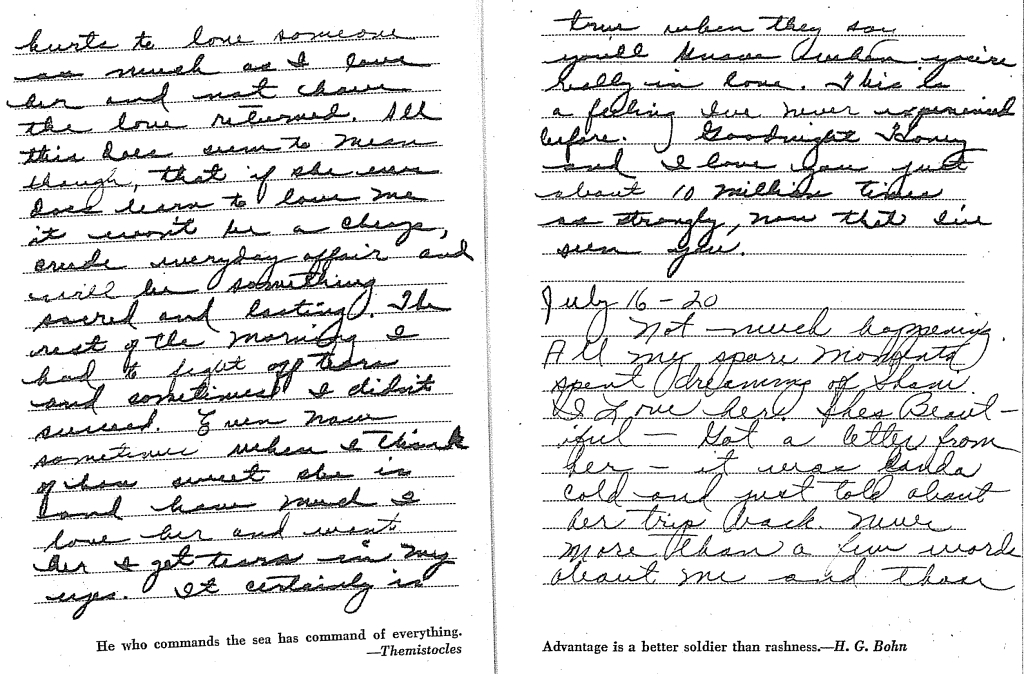 hurts to love someone
as much as I love
her and not have
the love returned. All
this does seem to mean
though, that if she ever
does learn to love me
it won't be a cheap,
crude everyday affair and
will be something
sacred and lasting. The
rest of the morning I
had to fight off tears
and sometimes I didn't
succeed. Even now
sometimes when I think
of how sweet she is
and how much I
love her and want
her I get tears in my
eyes. It certainly is
He who commands the sea has command of everything.
—Themistocles
true when they say
you'll know when you're
really in love. This is
a feeling I've never experienced
before. Goodnight Honey
and I love you just
about 10 million times
as strongly, now that I've
seen you.
July 16-20
Not much happening.
All my spare moments
spent dreaming of Shani
I Love her. Shes Beaut-
iful — Got a letter from
her — it was kinda
cold and just told about
her trip back. Never
more than a few words
about me and those
Advantage is a better soldier than rashness.—H. G. Bohn